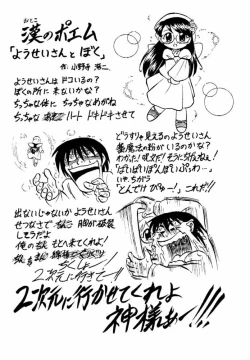 おとこ
漢のポエム
「ようせいさんとぼく」
作:小野寺 浩二
ようせいはドコいるの?
ぼくの所に来ないかな?
ちっちゃな体に ちっちゃなめがね
ちっちゃな ハート ドキドキさせて
どうすりゃ見えるのようせいさん
魔法の粉がいるのかな?
わかった!呪文だ!そうにちがいねえ!
「ぱいぱいぽんぽいぷわぷわ…」
いや、ちがう
「とんでけぴゅー!」これだ!!
出ないじゃないか ようせいさん
せつなさで 脳が破裂
してうだよ
俺の もとへ来てくれよ!
ちくしょう
2次元に行きてー!!
2次元に行かせてくれよ
神様よぉー!!!